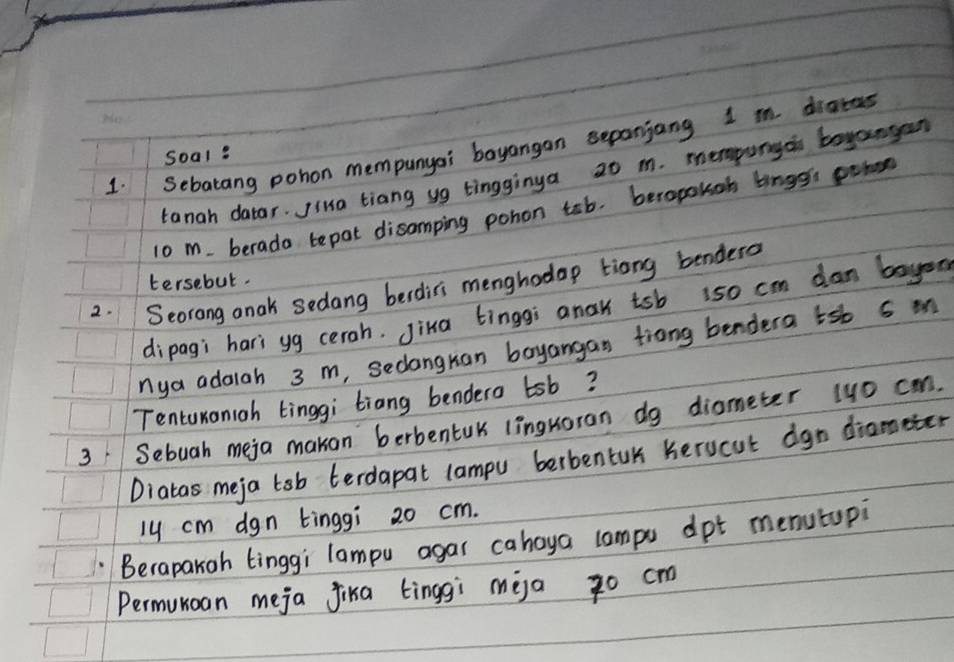 No.
Soal :
1. Sebatang pohon mempunyai bayangan sepanjang 1 m. diatas
tanah datar. Jika tiang yg tingginya 20 m. mempunyai bayangan
10 m - berada tepat disamping pohon tsb. berapakah tinggi pohon
tersebut.
2. Seorang anak sedang berdiri menghadap tiang bendera
dipagi hari yg cerah. Jika tinggi anak tsb 150 cm dan bayan
nya adalah 3 m, sedangkan bayangan tiang bendera tsb 6 m
Tentukanlah tinggi tiang bendera tsb ?
3. Sebuah meja makan berbentuk lingkaran dg diameter 140 cm.
Diatas meja tsb terdapat lampu berbentuk kerucut dgn diameter
14 cm dgn tinggi 20 cm.
Berapakah tinggi lampu agar cahaya lampu dpt menutupi
Permukaan meja jika tinggi meja 70 cm